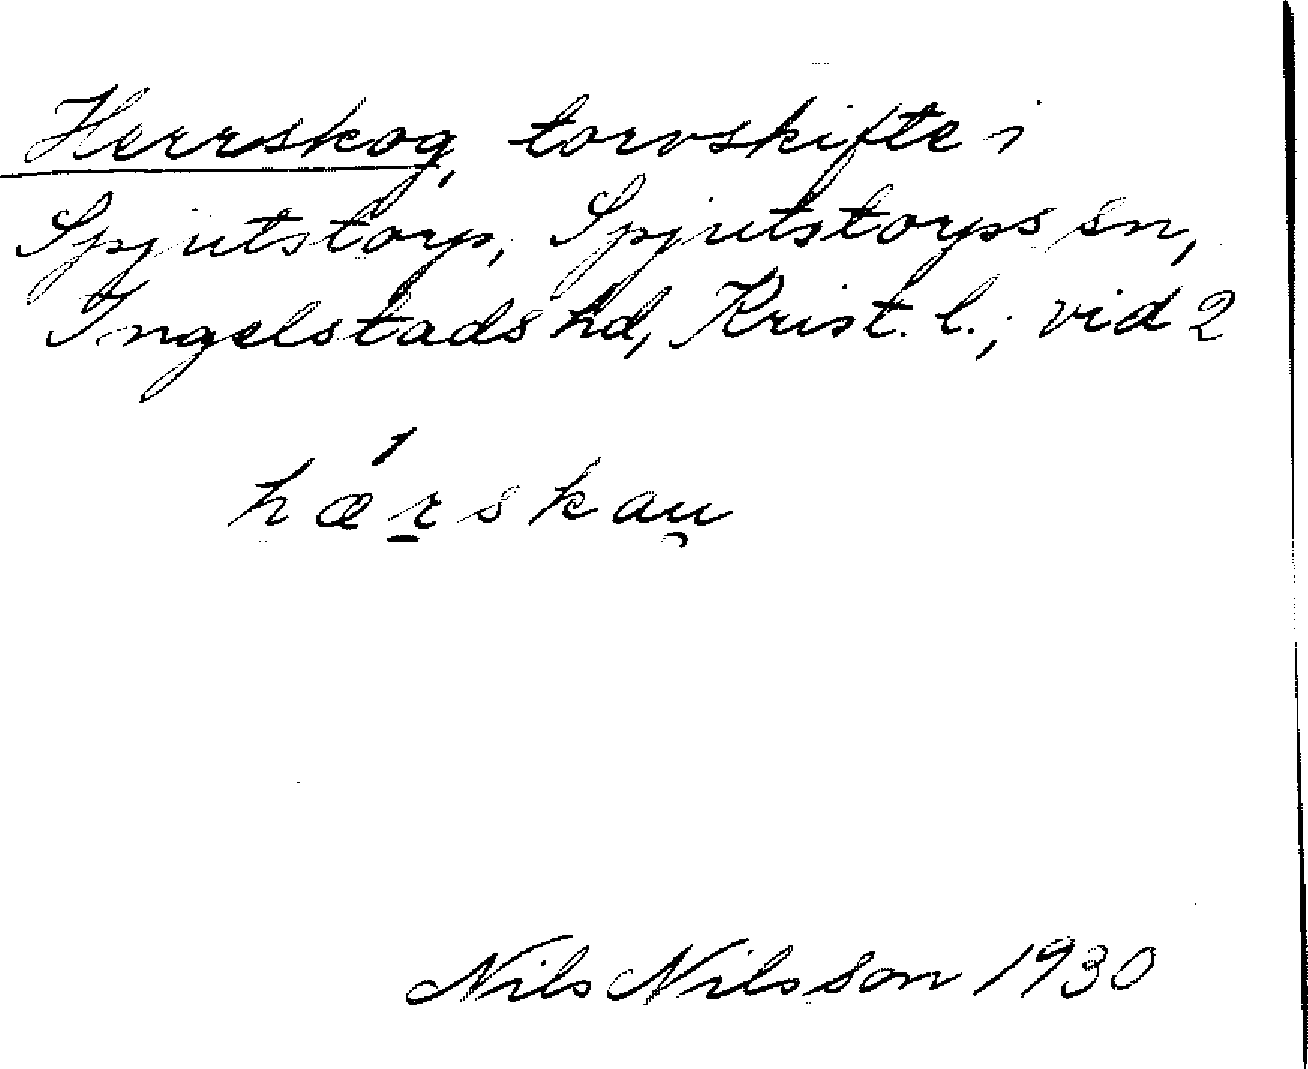 Herrskog, torvskifte i
Spjutstorp, Spjutstorps sn,
Ingelstads hd, Krist. l.; vid 2
hǽr̲skau̯
Nils Nilsson 1930